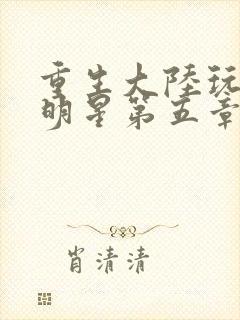 重生大陸玩
明星第五章
肖清清